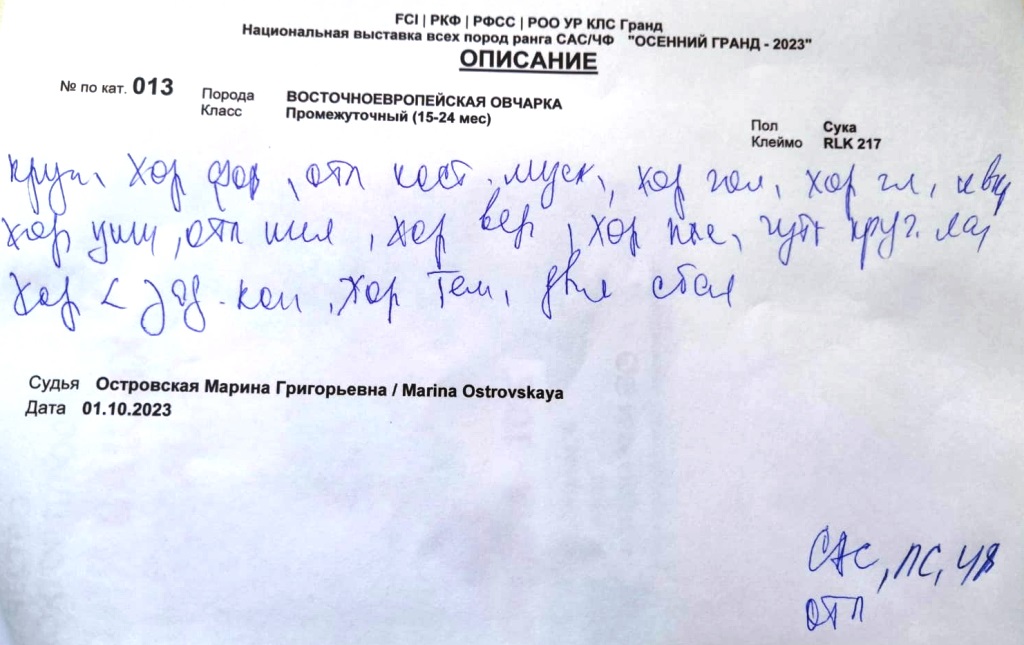 FCI | РКФ | РФСС | РОО УР КЛС Гранд
Национальная выставка всех пород ранга САС/ЧФ "ОСЕННИЙ ГРАНД - 2023"
ОПИСАНИЕ
№ по кат. 013
Порода ВОСТОЧНОЕВРОПЕЙСКАЯ ОВЧАРКА
Класс Промежуточный (15-24 мес)
Пол Сука
Клеймо RLK 217
круп, хор фор, отл кост. муск, хор гол, хор гл,
хор уши, отл шея, хор вер, хор пле, чуть круг. ла,
хор < зад. кон, хор тем, движ сбал
Судья Островская Марина Григорьевна / Marina Ostrovskaya
Дата 01.10.2023
САС, ЛС,
ОТЛ